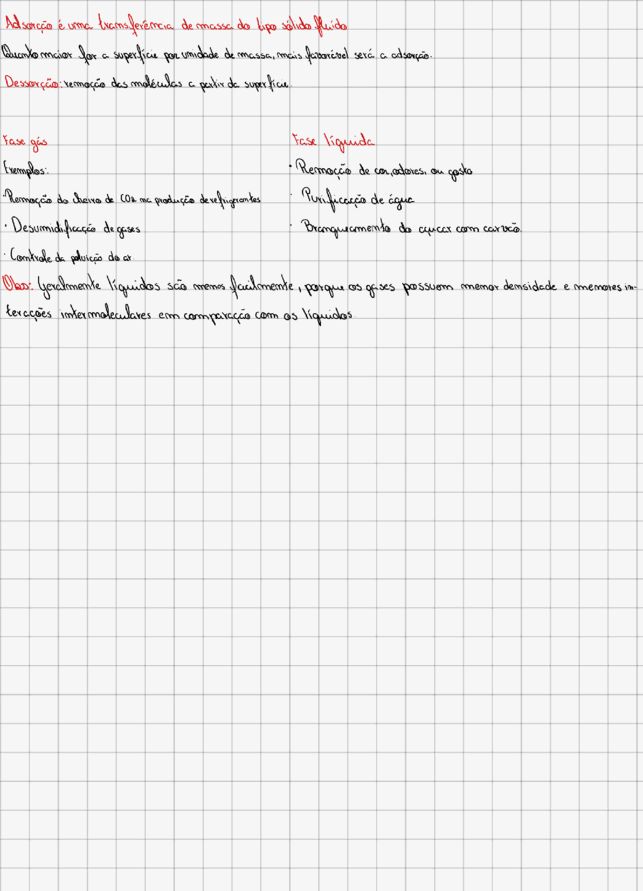 Adsorção é uma transferência de massa do tipo sólido fluido
Quanto maior for a superfície por unidade de massa, mais favorável será a adsorção.
Dessorção: remoção das moléculas a partir da superfície
Fase gás
Exemplos:
· Remoção do cheiro de CO2 na produção de refrigerantes
· Desumidificação de gases
· Controle da poluição do ar
Fase líquida
· Remoção de cor, odores, ou gosto
· Purificação de água
· Branqueamento do açucar com carvão
Obs: Geralmente líquidos são menos facilmente, porque os gases possuem menor densidade e menores in-
terações intermoleculares em comparação com os líquidos